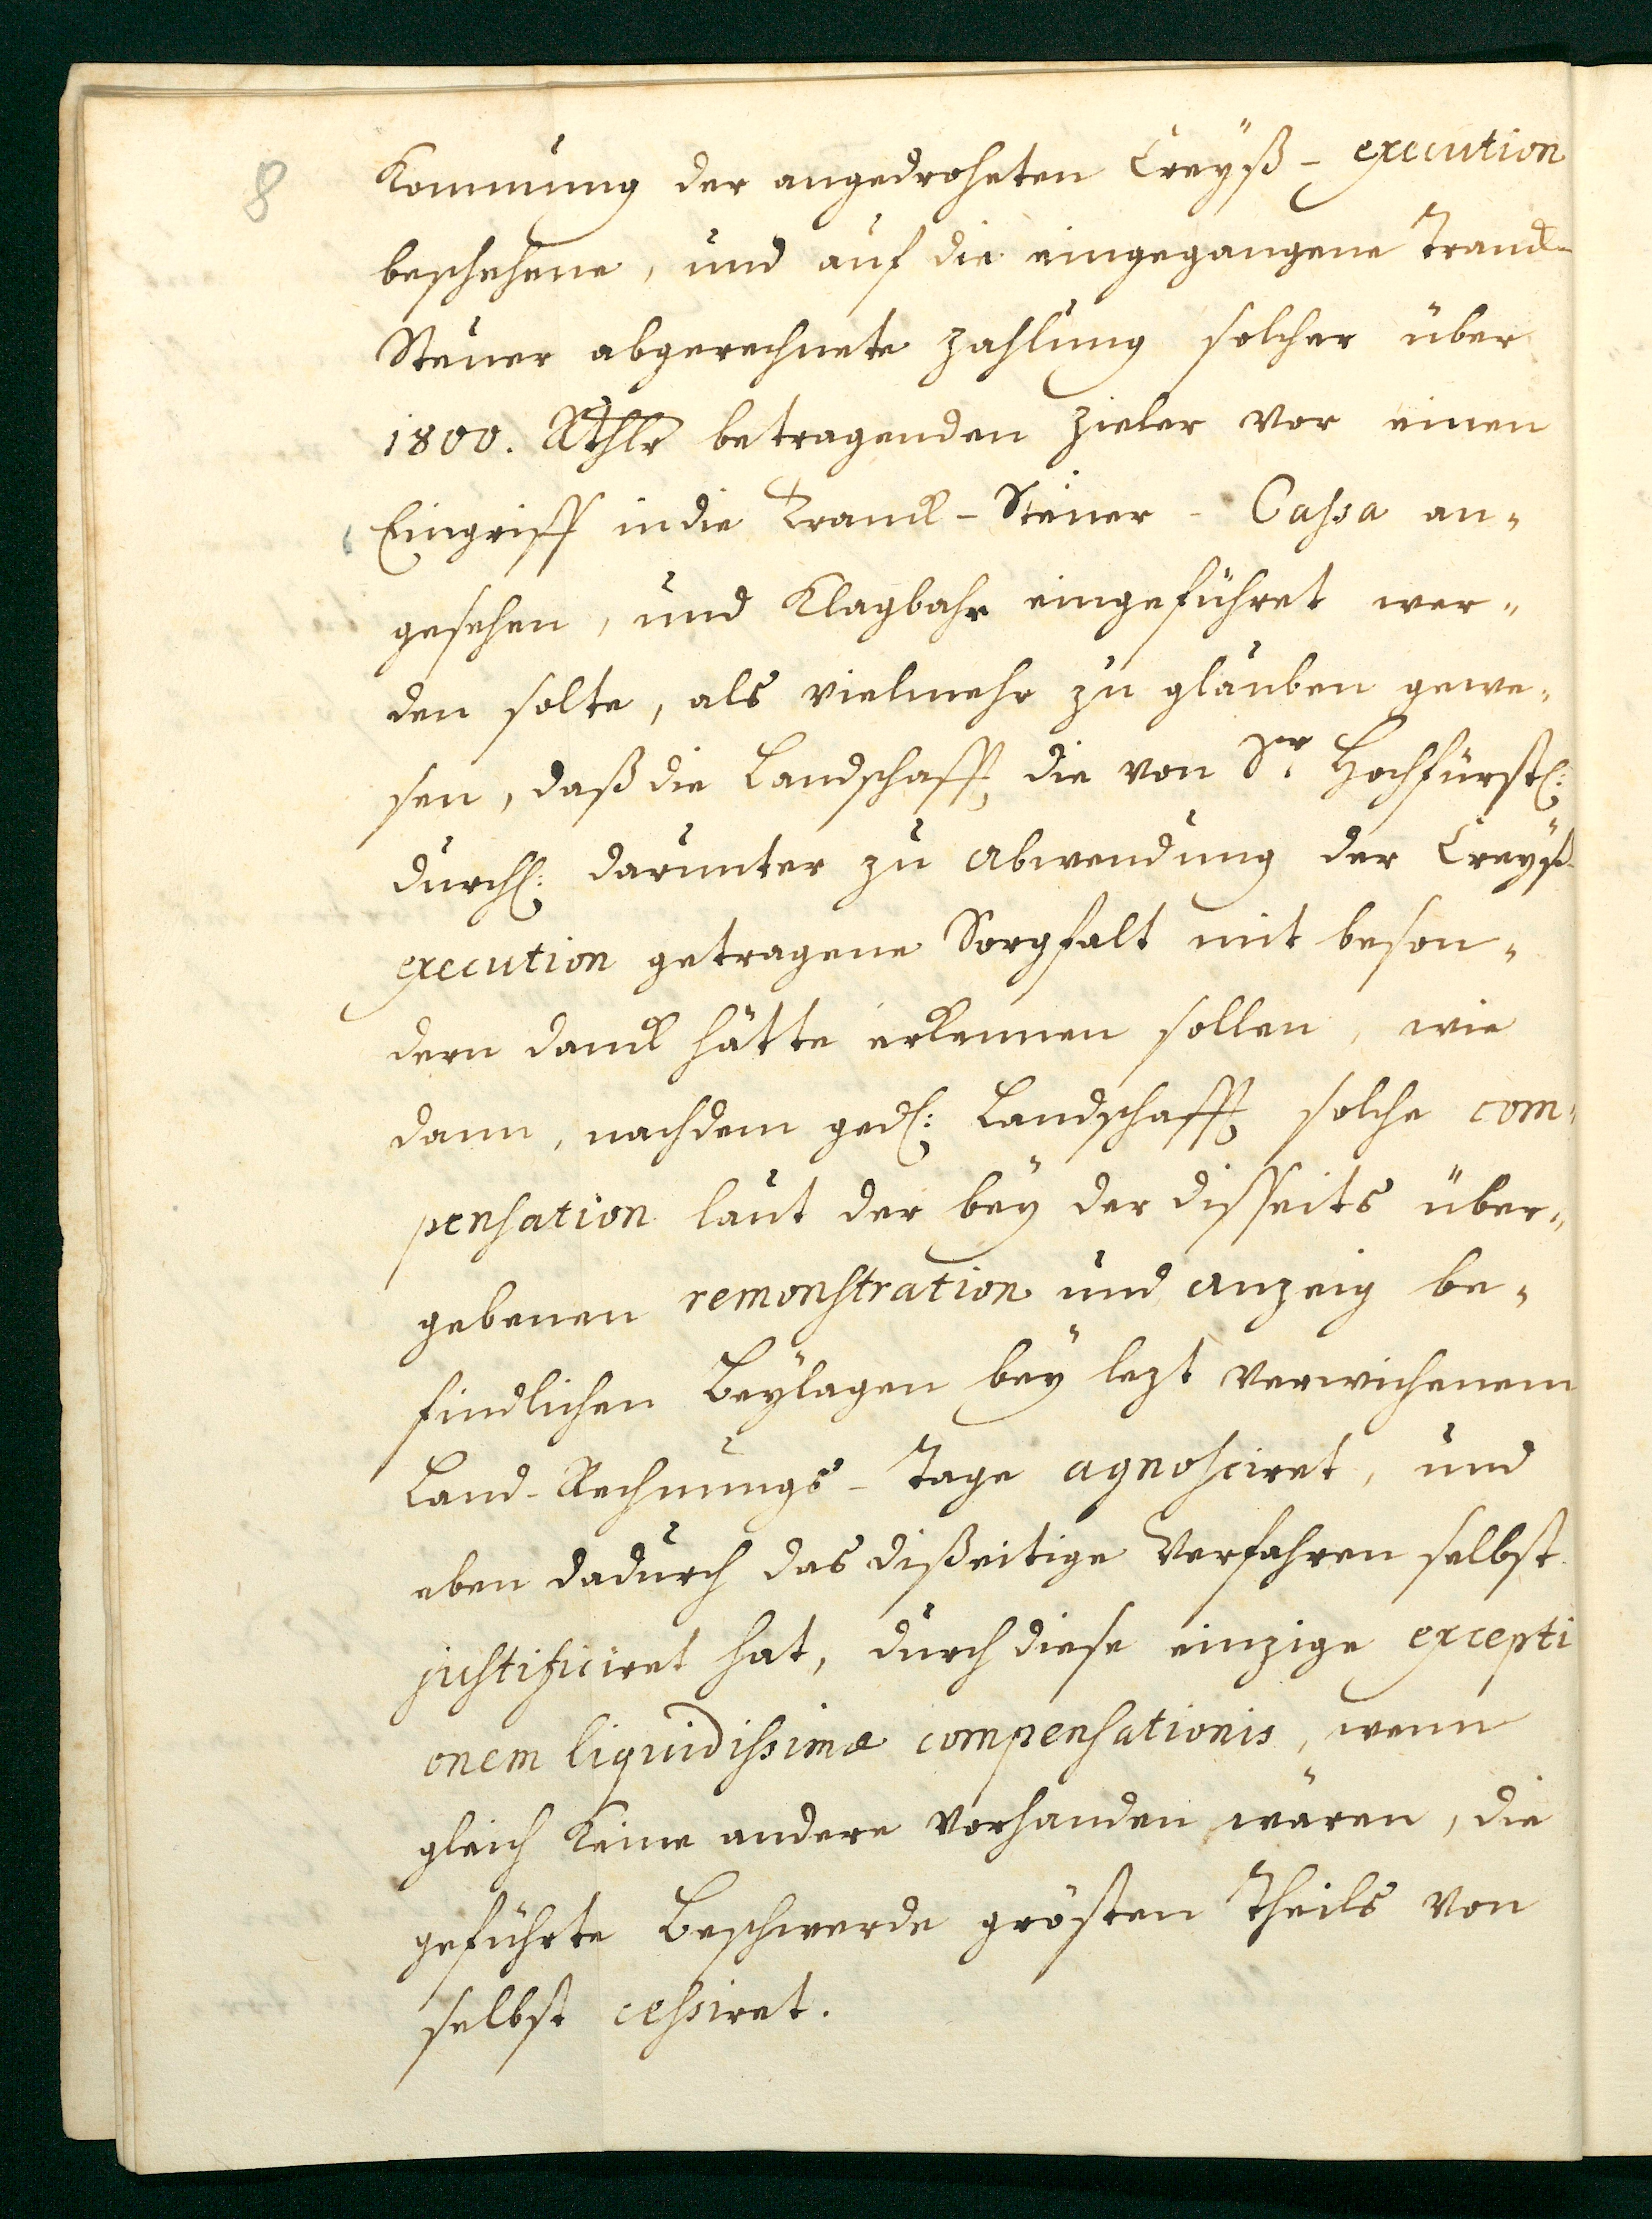 8
Kommung der angedroheten Creyß-execution
beschehene, und auf die eingegangene Tranck-
Steuer abgerechnete Zahlung solcher über
1800. Rthlr betragenden Zieler vor einen
Eingriff in die Tranck-Steuer-Cassa an-
gesehen, und Klagbahr eingeführet wer-
den solte, als vielmehr zu glauben gewe-
sen, daß die Landschafft die von Sr Hochfürstl:
Durchl: darunter zu Abwendung der Creyß-
execution getragene Sorgfalt mit beson-
dern danck hätte erkennen sollen, wie
dann, nachdem gedl: Landschafft solche com-
pensation laut der bey der disseits über-
gebenen remonstration und Anzeig be-
findlichen Beylagen bey lezt verwichenem
Land-Rechnungs-Tage agnosciret, und
eben dadurch das dißeitige Verfahren selbst
justificiret hat, durch diese einzige excepti
onem liquidissimæ compensationis, wenn
gleich Keine andere vorhanden wären, die
geführte Beschwerde grösten Theils von
selbst cessiret.